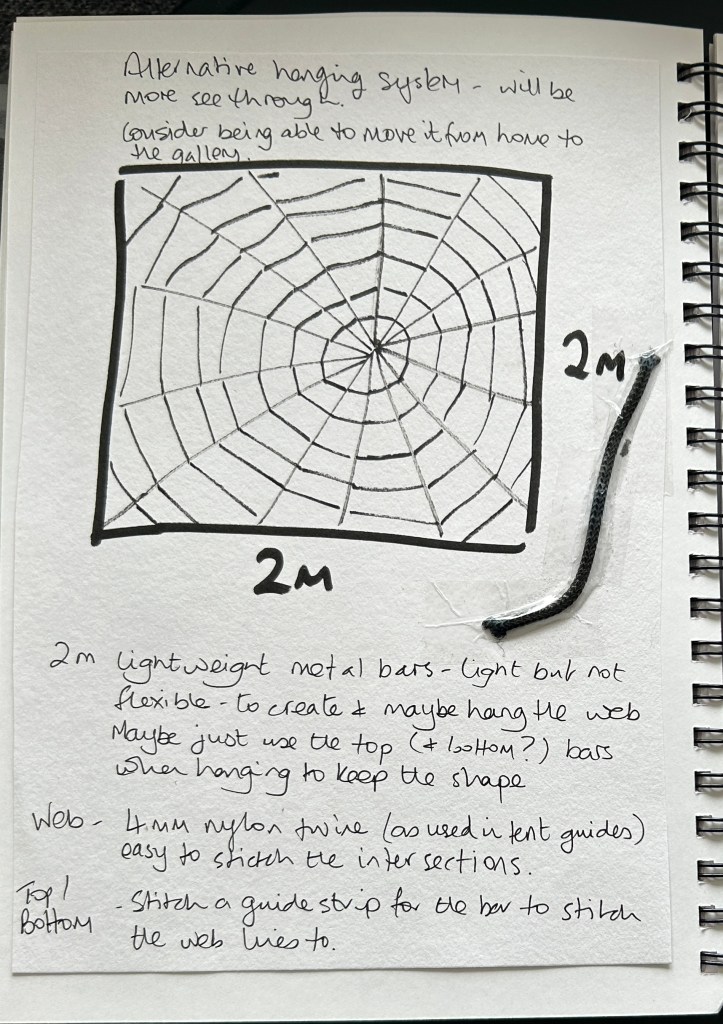 Alternative hanging system - will be
more see through.
Consider being able to move it from home to
the gallery.
2M
2M
2m lightweight metal bars - light but not
flexible - to create & maybe hang the web
Maybe just use the top (& bottom?) bars
when hanging to keep the shape
Web - 4mm nylon twine (as used in tent guides)
easy to stictch the intersections.
Top/
Bottom
- Stitch a guide strip for the bar to stitch
the web lines to.